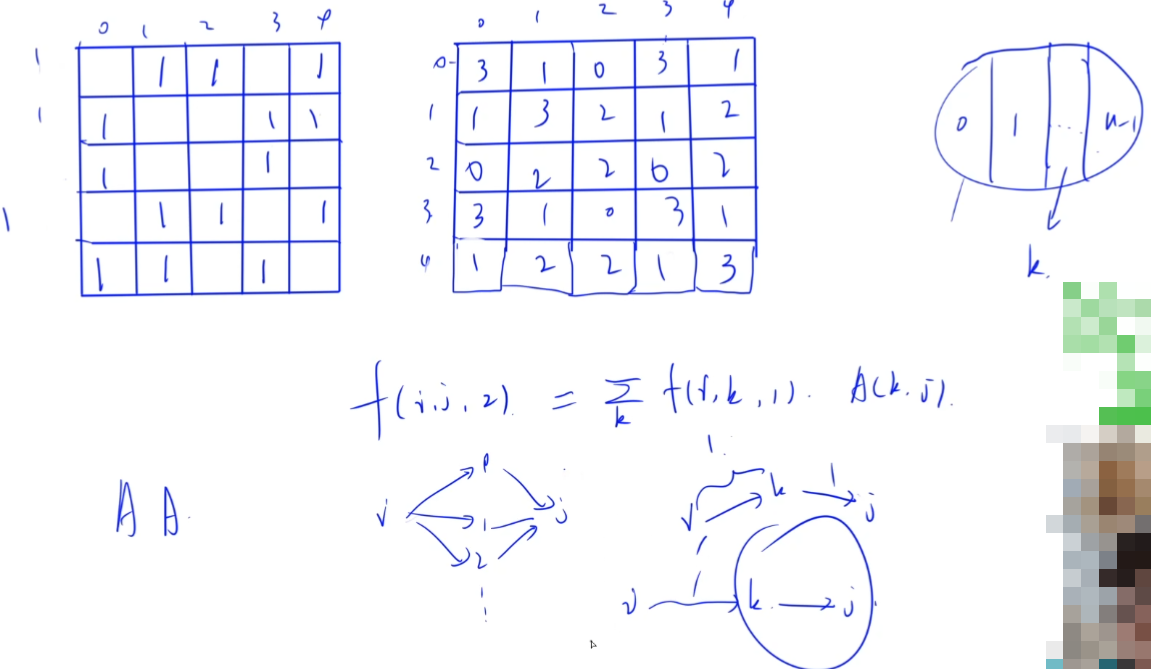 0 1 2 3 4
1 1 1 1
1 1 1 1
1 1
1 1 1 1
1 1 1
0 1 2 3 4
0 3 1 0 3 1
1 1 3 2 1 2
2 0 2 2 0 2
3 3 1 0 3 1
4 1 2 2 1 3
0 1 ... n-1
k.
f(i,j,2) = Σ f(i,k,1). A(k,j).
k
A A.
i 1 j
2
1.
i k 1 j
i k j